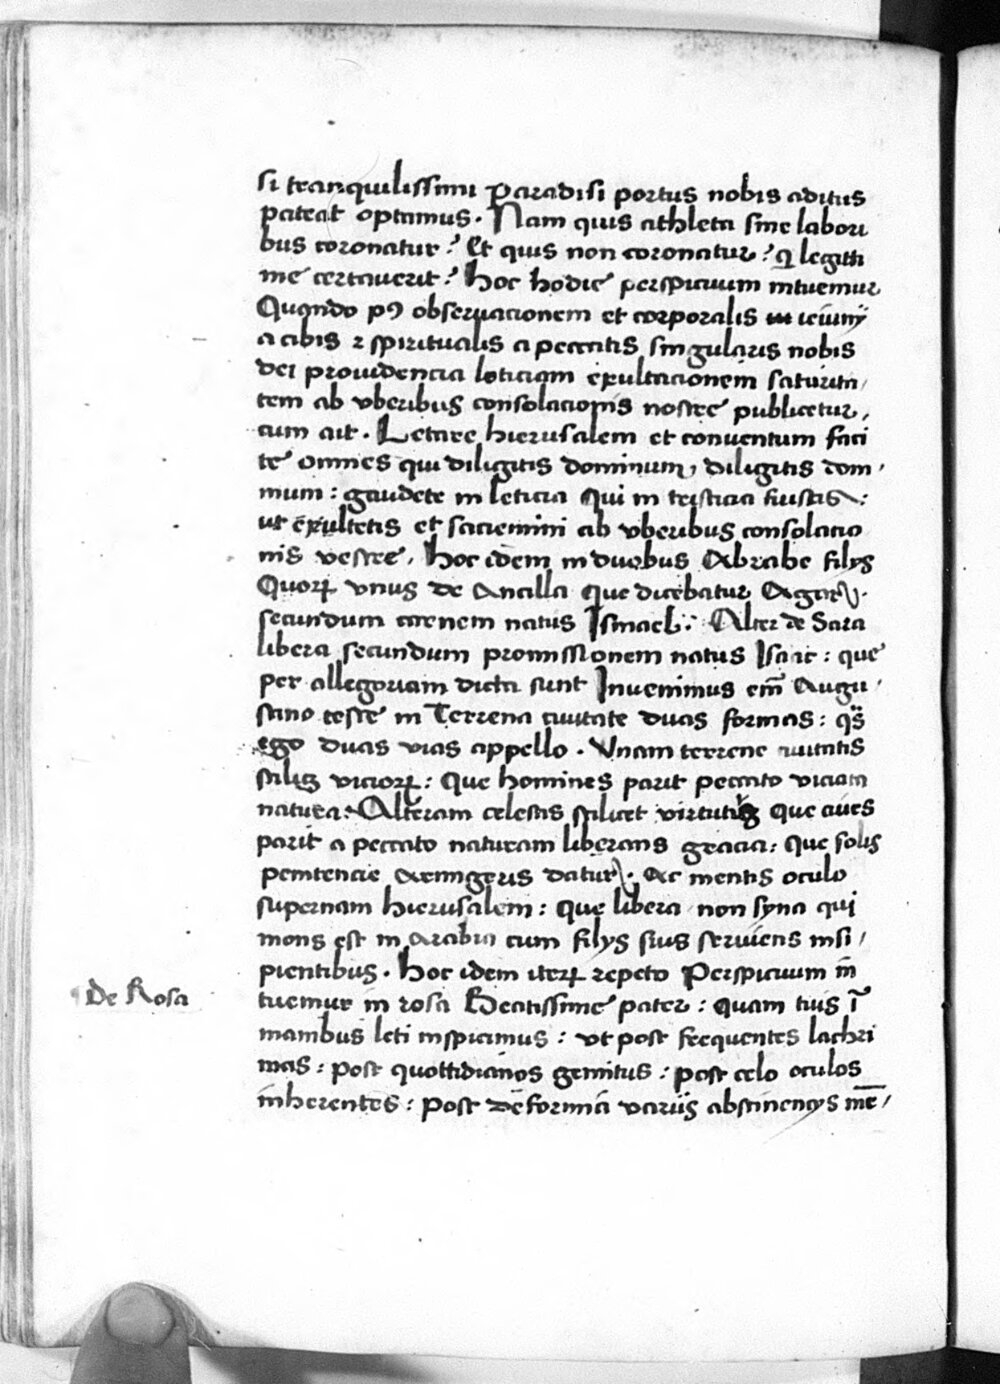 si tranquilissimi paradisi portus nobis aditus
pateat optamus. Nam quis athleta sine labori
bus coronatur? Et quis non coronatur? qui legitti
me certaverit? Hoc hodie perspicuum intuemur
Quando pꝰ observacionem et corporalis ieiunÿ
a cibis ⁊ spiritualis a peccatis singularis nobis
dei providencia leticiam exultacionem saturita/
tem ab vberibus consolacionis nostre publicetur,
cum ait. Letare hierusalem et conventum faci
te omnes qui diligitis dominum, diligitis dom/
inum: gaudete in leticia qui in tristicia fuistis:
ut exultetis et saciemini ab vberibus consolacio
nis vestre, Hoc idem in duobus Abrahe filÿs
Quoꝝ vnus de Ancilla que dicebatur Agar.
secundum carnem natus Ismael: Alter de Sara
libera secundum promissionem natus Isaac: que
per allegoriam dicta sunt Invenimus em̅ Augu/
stino teste in Terrena civitate duas formas: qs̈
ego duas vias appello. Vnam terrene civitatis
scilicet vicioꝝ: Que homines parit peccato viciata
natura: Alteram celestis scilicet virtutis que cives
parit a peccato naturam liberans gracia: que solis
penitencie armigeris datur. Ac mentis oculo
supernam hierusalem: que libera non syna qui
mons est in arabia cum filÿs suis serviens insi/
pientibus. Hoc idem iteꝝ repeto Perspicuum in
De Rosa
tuemur in rosa Beatissime pater: quam tuis ī
manibus leti inspicimus: vt post frequentes lachri
mas: post quottidianos gemitus: post celo oculos
inherentes: post deformā variis abstinencÿs me̅/